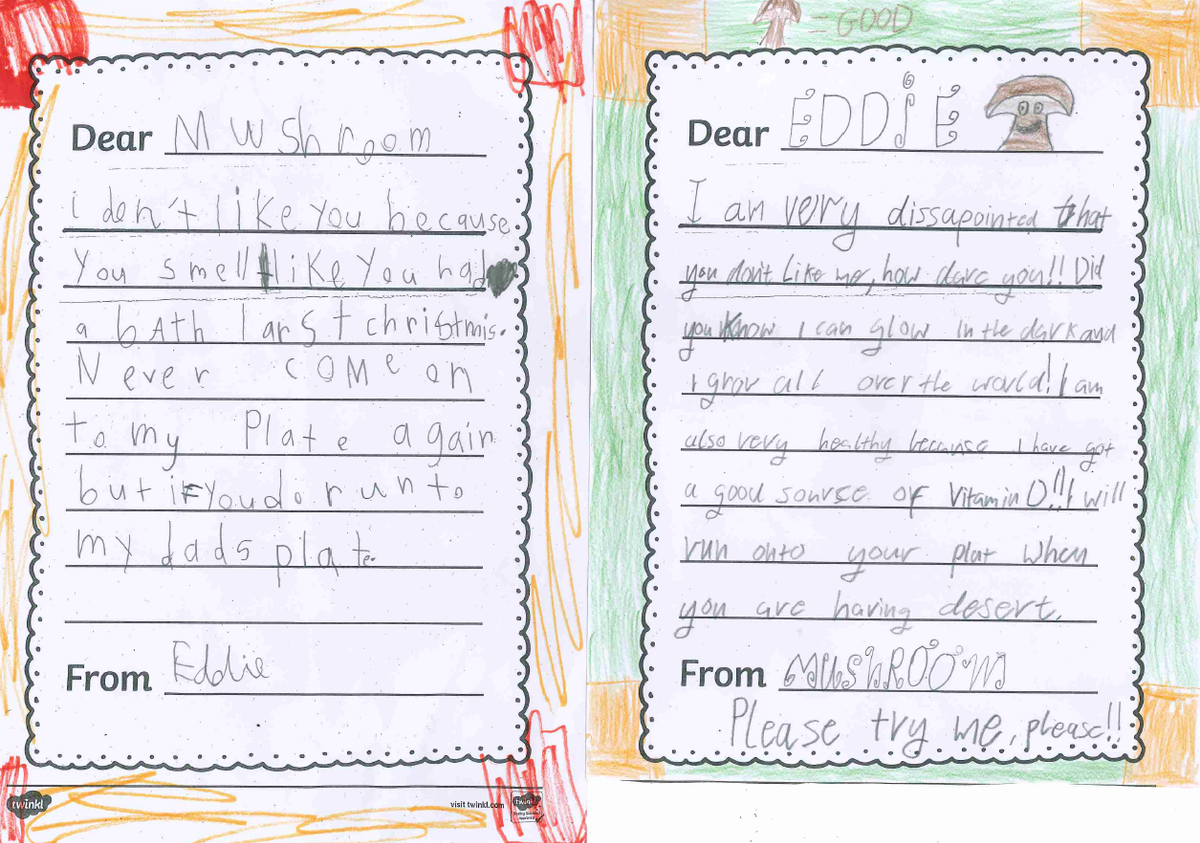 Dear Mwshroom
i don't like you because
You smell like You had
a bAth larst christmis.
Never coMe on
to my Plate again
but if you do run to
my dads plate.
From Eddie
twinkl
visit twinkl.com
= GOOD
Dear EDDiE
I am very dissapointed that
you don't like me, how dare you!! Did
you know I can glow in the dark and
I grow all over the world! I am
also very healthy because I have got
a good sourse of Vitamin D!! I will
run onto your plat when
you are having desert.
From MUSHROOM
Please try me, please!!